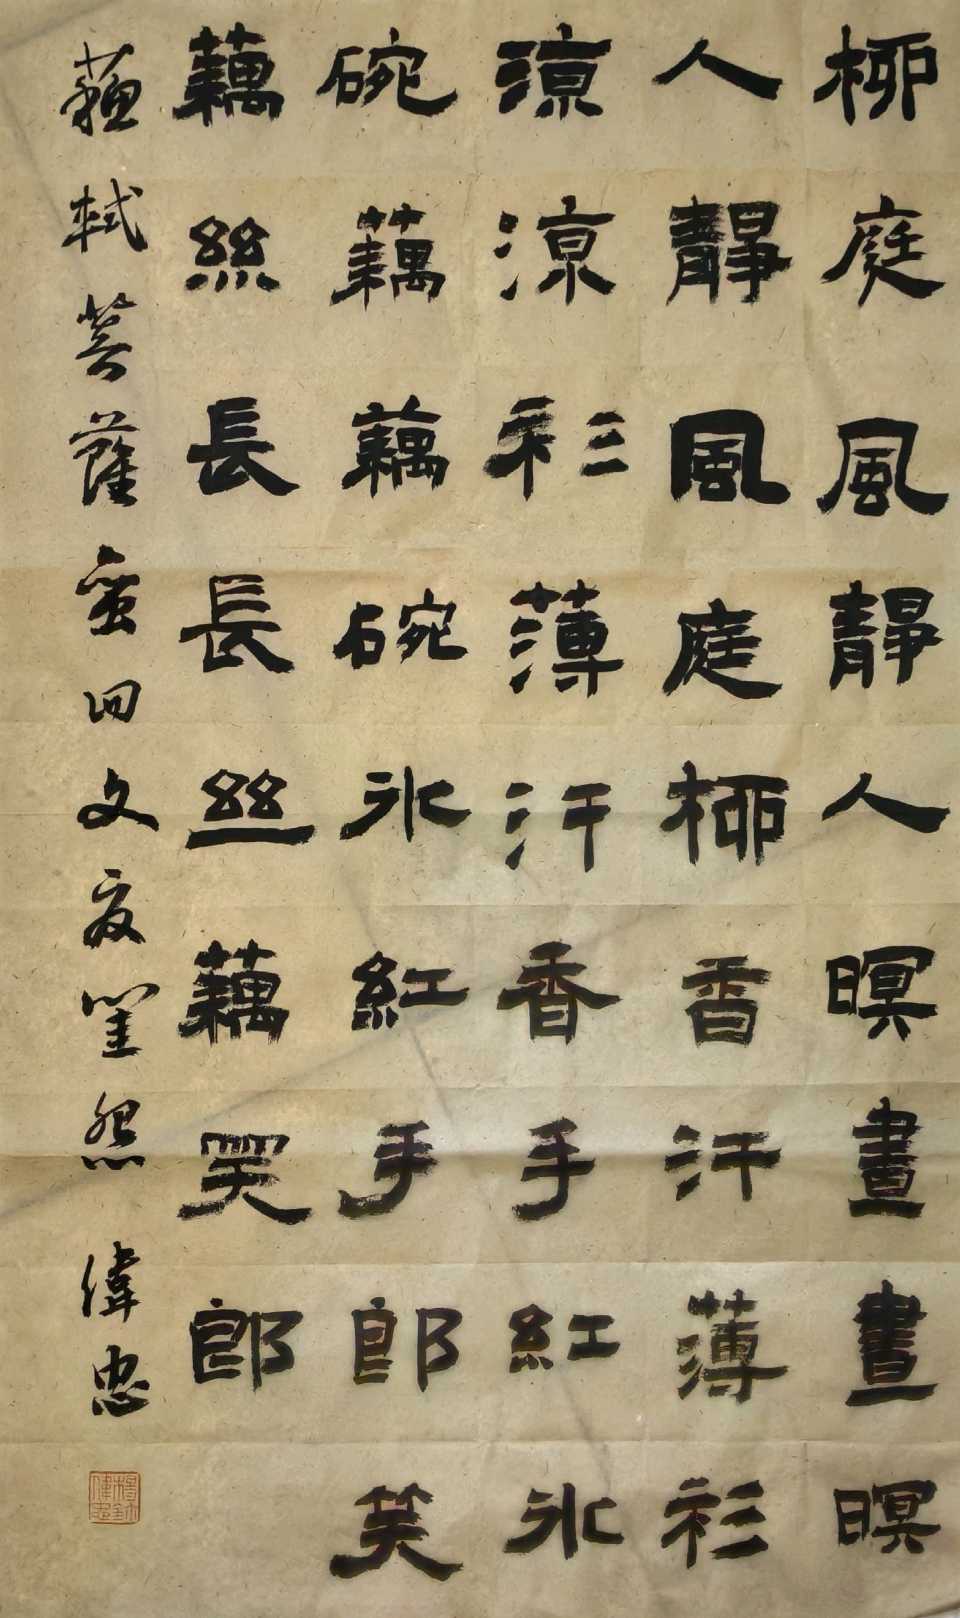 柳庭風靜人暝晝晝暝
人靜風庭柳香汗薄衫
涼涼衫薄汗香手紅冰
碗藕藕碗冰紅手郎笑
藕絲長長絲藕笑郎
蘇軾菩薩蛮回文夏閨怨 偉忠